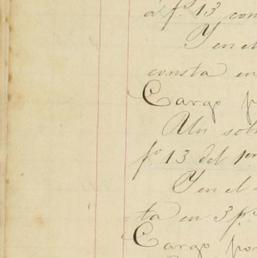 á fº 13 con
Y en el
consta en
Cargo p
Un sob
fº 13 del pm
Y en el
ta en 3 p.s
Cargo por